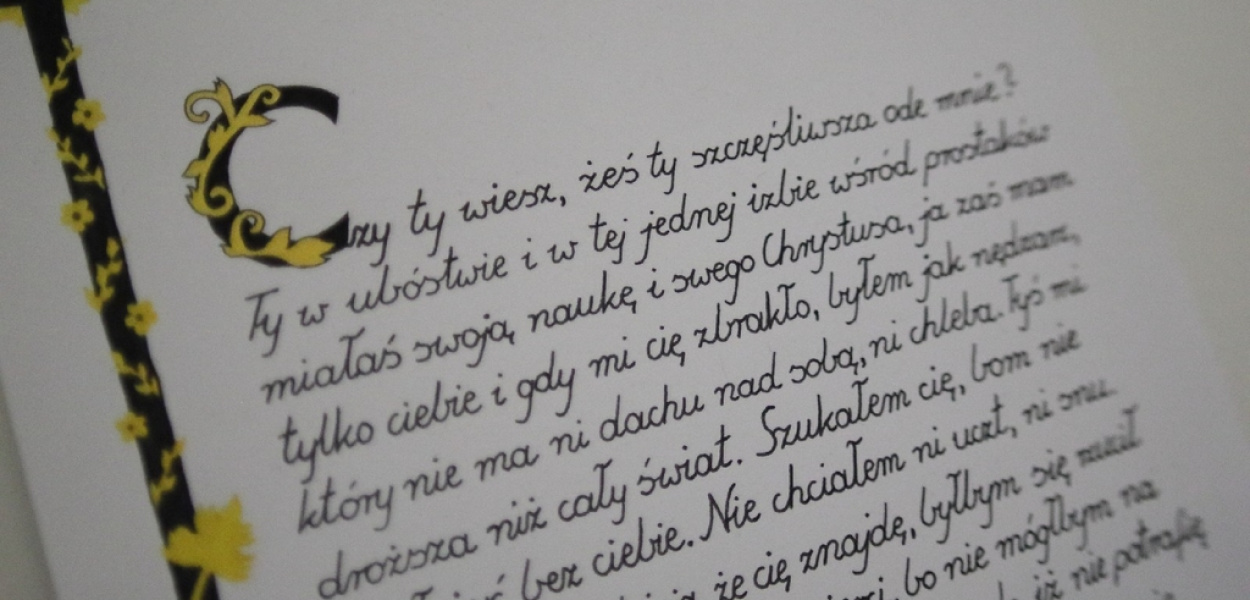 Czy ty wiesz, żeś ty szczęśliwsza ode mnie?
Ty w ubóstwie i w tej jednej izbie wśród prostaków
miałaś swoją naukę i swego Chrystusa, ja zaś mam
tylko ciebie i gdy mi cię zbrakło, byłem jak nędzarz,
który nie ma ni dachu nad sobą, ni chleba. Tyś mi
droższa niż cały świat. Szukałem cię, bom nie
bez ciebie. Nie chciałem ni uczt, ni snu.
że cię znajdę, byłbym się rzucił
bo nie mógłbym na
iż nie potrafię